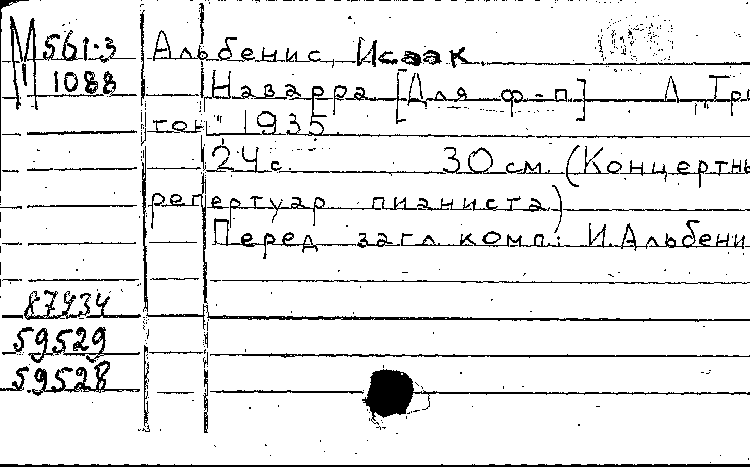 М 561-3
1088
Альбенис, Исаак
Наварра [Для ф-п] Л., "Три
тон" 1935.
24 с. 30 см. (Концертны
репертуар пианиста)
Перед загл. комп.: И. Альбени
87934
59529
59528